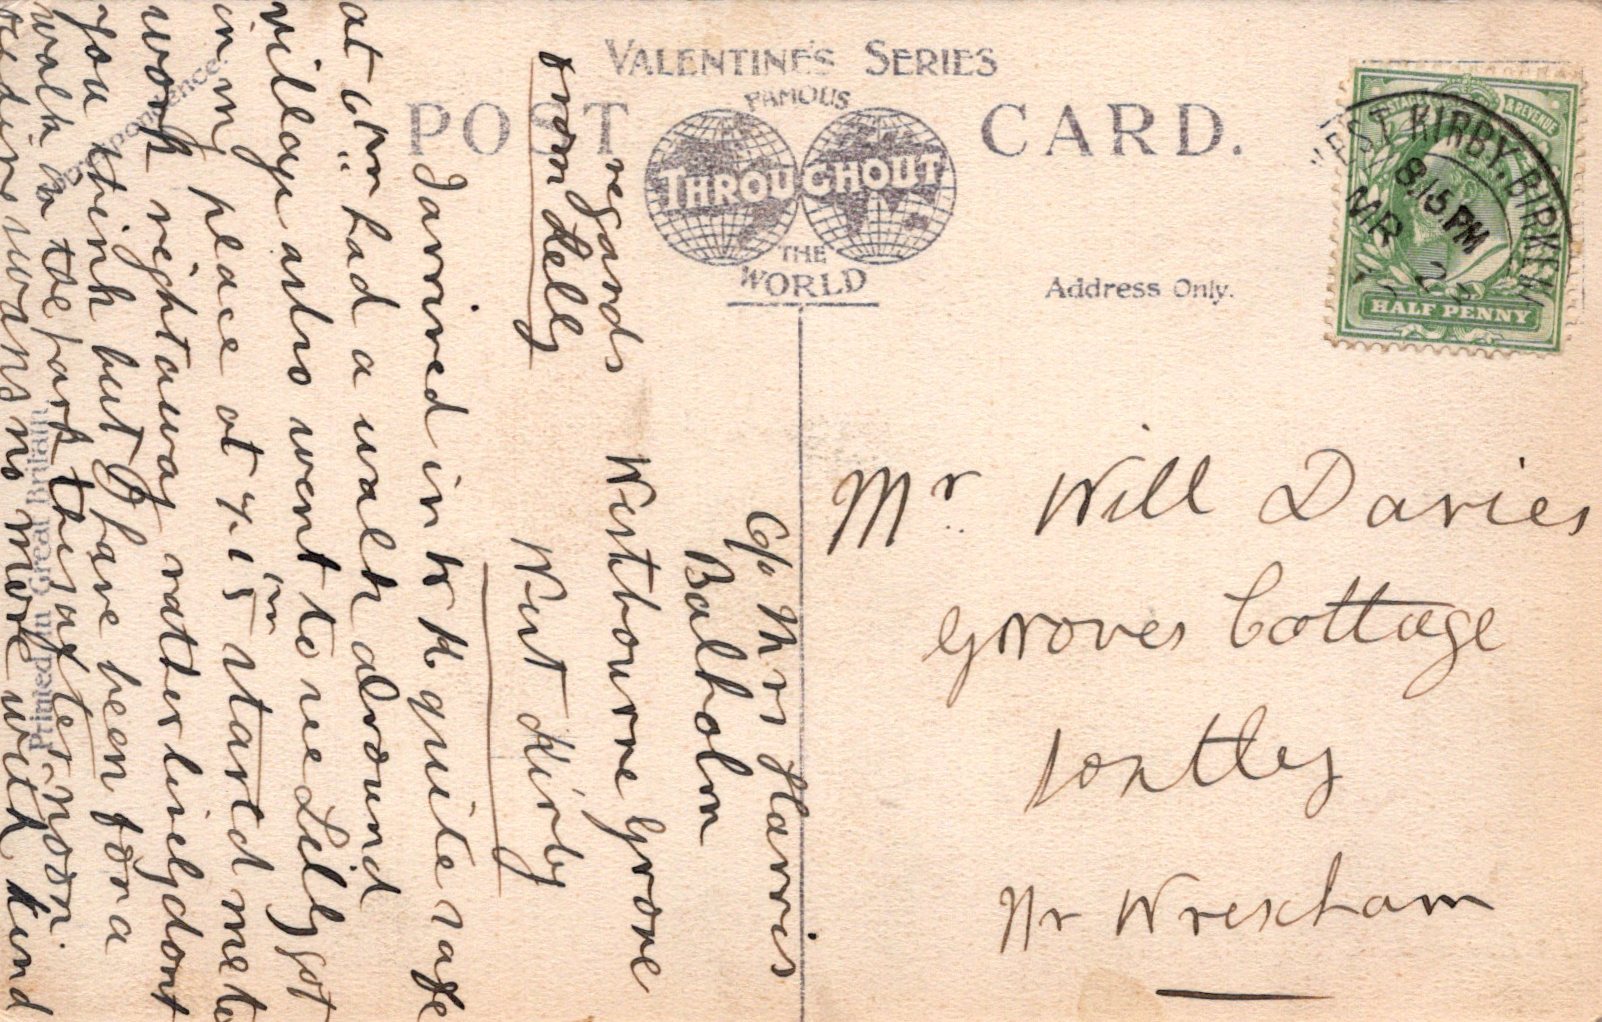 VALENTINE'S SERIES
FAMOUS
POST CARD.
THROUGHOUT
THE
WORLD
Address Only.
POSTAGE & REVENUE
HALF PENNY
WEST KIRBY, BIRKEN
8.15 PM
MR 2
Mr. Will Davies
Groves Cottage
Nr Wrexham
C/o Mrs Harris
Balholm
Westbourne Grove
West Kirby
I arrived in W K quite safe
at 6 pm had a walk around
village also went to see Lilly got
in my place at 7.15 pm started me to
work rightaway rather lively dont
you think but I have been for a
walk on the park this afternoon
no more with kind
regards
from Lelly
Correspondence.
Printed in Great Britain